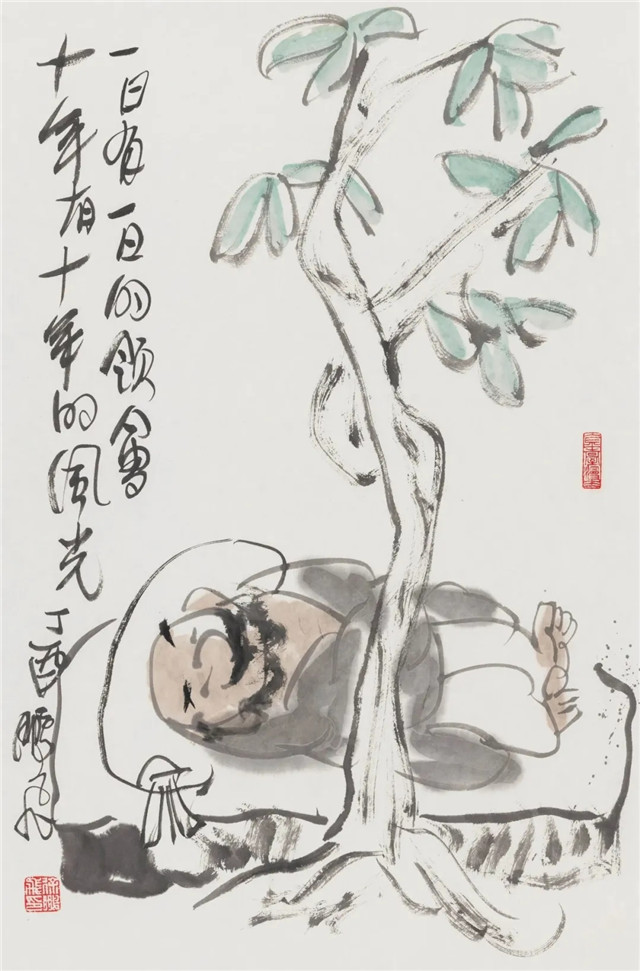 一日有一日的领會
十年有十年的風光
丁酉鹏飞